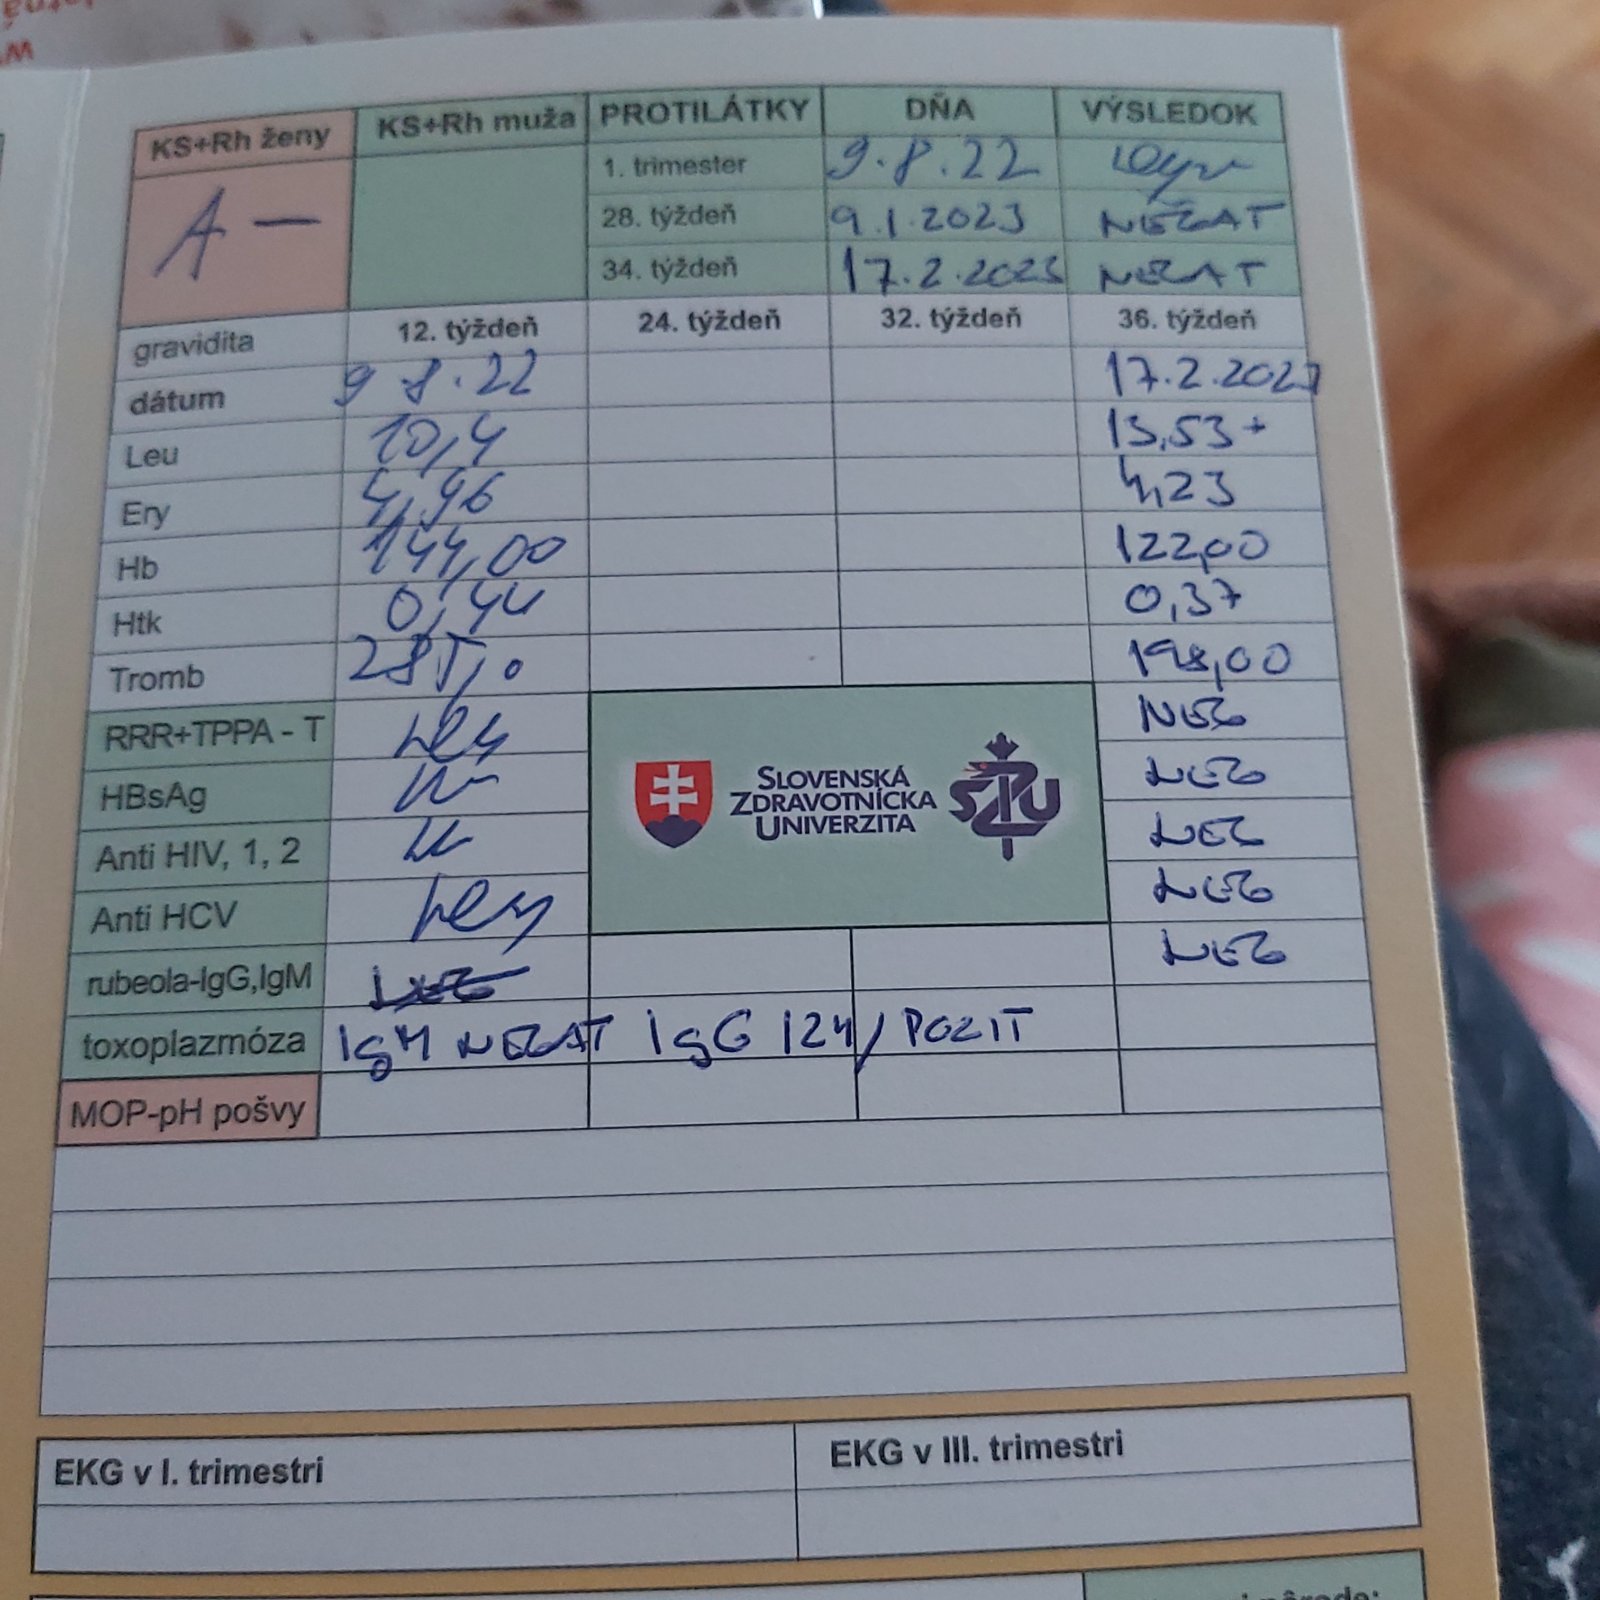 KS+Rh ženy KS+Rh muža PROTILÁTKY DŇA VÝSLEDOK
A - 1. trimester 9.8.22
28. týždeň 9.1.2023 NEGAT
34. týždeň 17.2.2023 NEGAT
gravidita 12. týždeň 24. týždeň 32. týždeň 36. týždeň
dátum 9 8.22 17.2.2023
Leu 10,4 13,53 +
Ery 4,96 4,23
Hb 144,00 122,00
Htk 0,44 0,37
Tromb 198,00
RRR+TPPA - T neg NEG
HBsAg NEG
Anti HIV, 1, 2 NEG
Anti HCV neg NEG
rubeola-IgG,IgM NEG NEG
toxoplazmóza IgM NEGAT IgG 124/ POZIT
MOP-pH pošvy
SLOVENSKÁ
ZDRAVOTNÍCKA
UNIVERZITA
SZU
EKG v I. trimestri EKG v III. trimestri